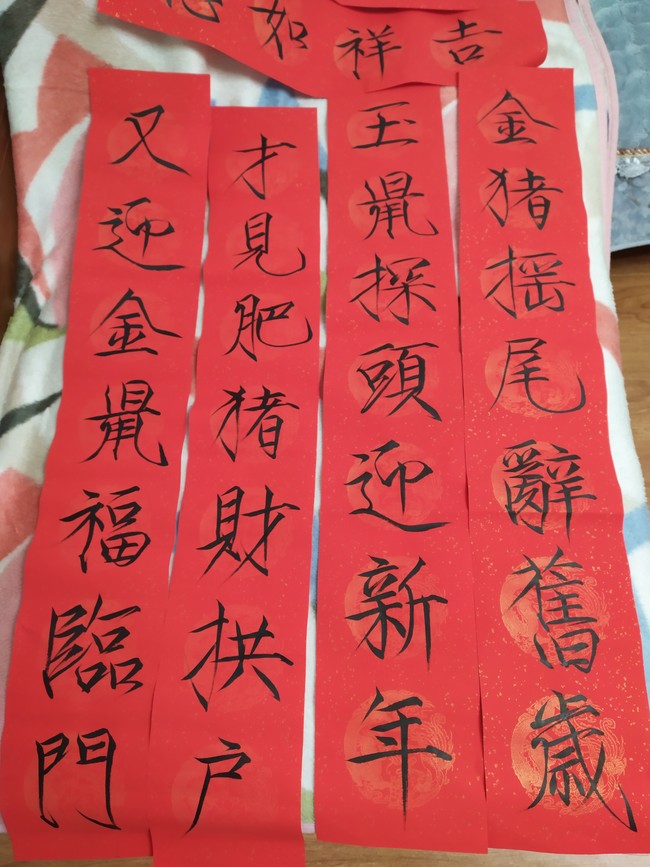 吉祥如
金猪摇尾辭舊歲
玉鼠探頭迎新年
才見肥猪財拱户
又迎金鼠福臨門